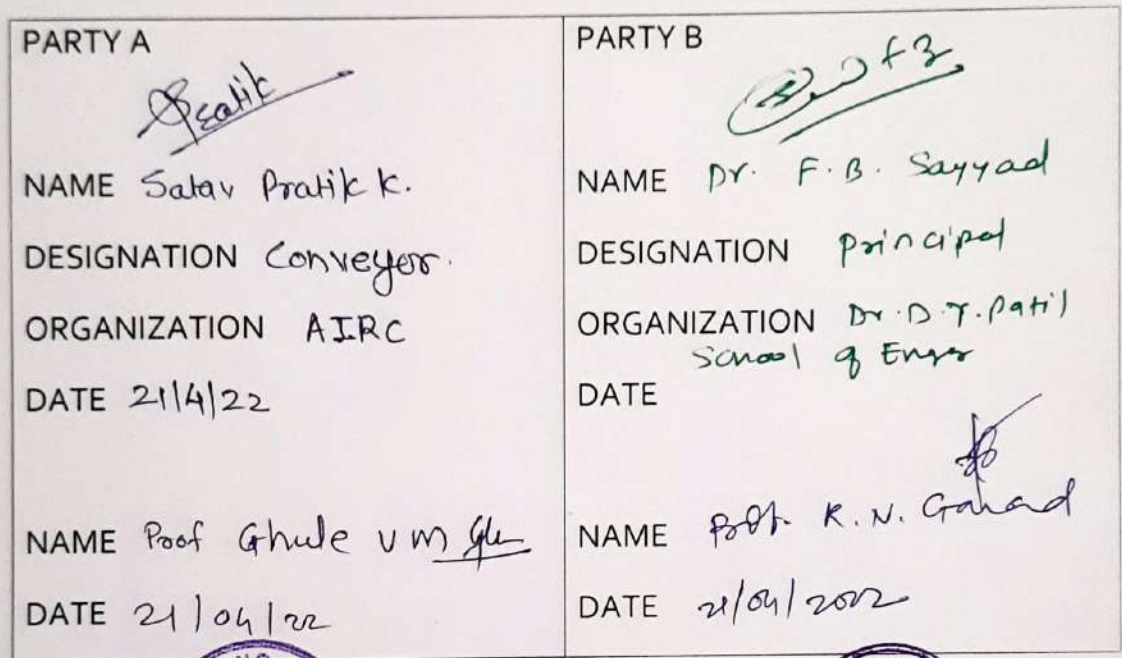 PARTY A
Pratik
NAME Satav Pratik K.
DESIGNATION Conveyor.
ORGANIZATION AIRC
DATE 21/4/22
NAME Prof Ghule V M
DATE 21/04/22
PARTY B
NAME Dr. F.B. Sayyad
DESIGNATION Principal
ORGANIZATION Dr.D.Y.Patil
School of Engg
DATE
NAME Prof. K.N.
DATE 21/04/2022